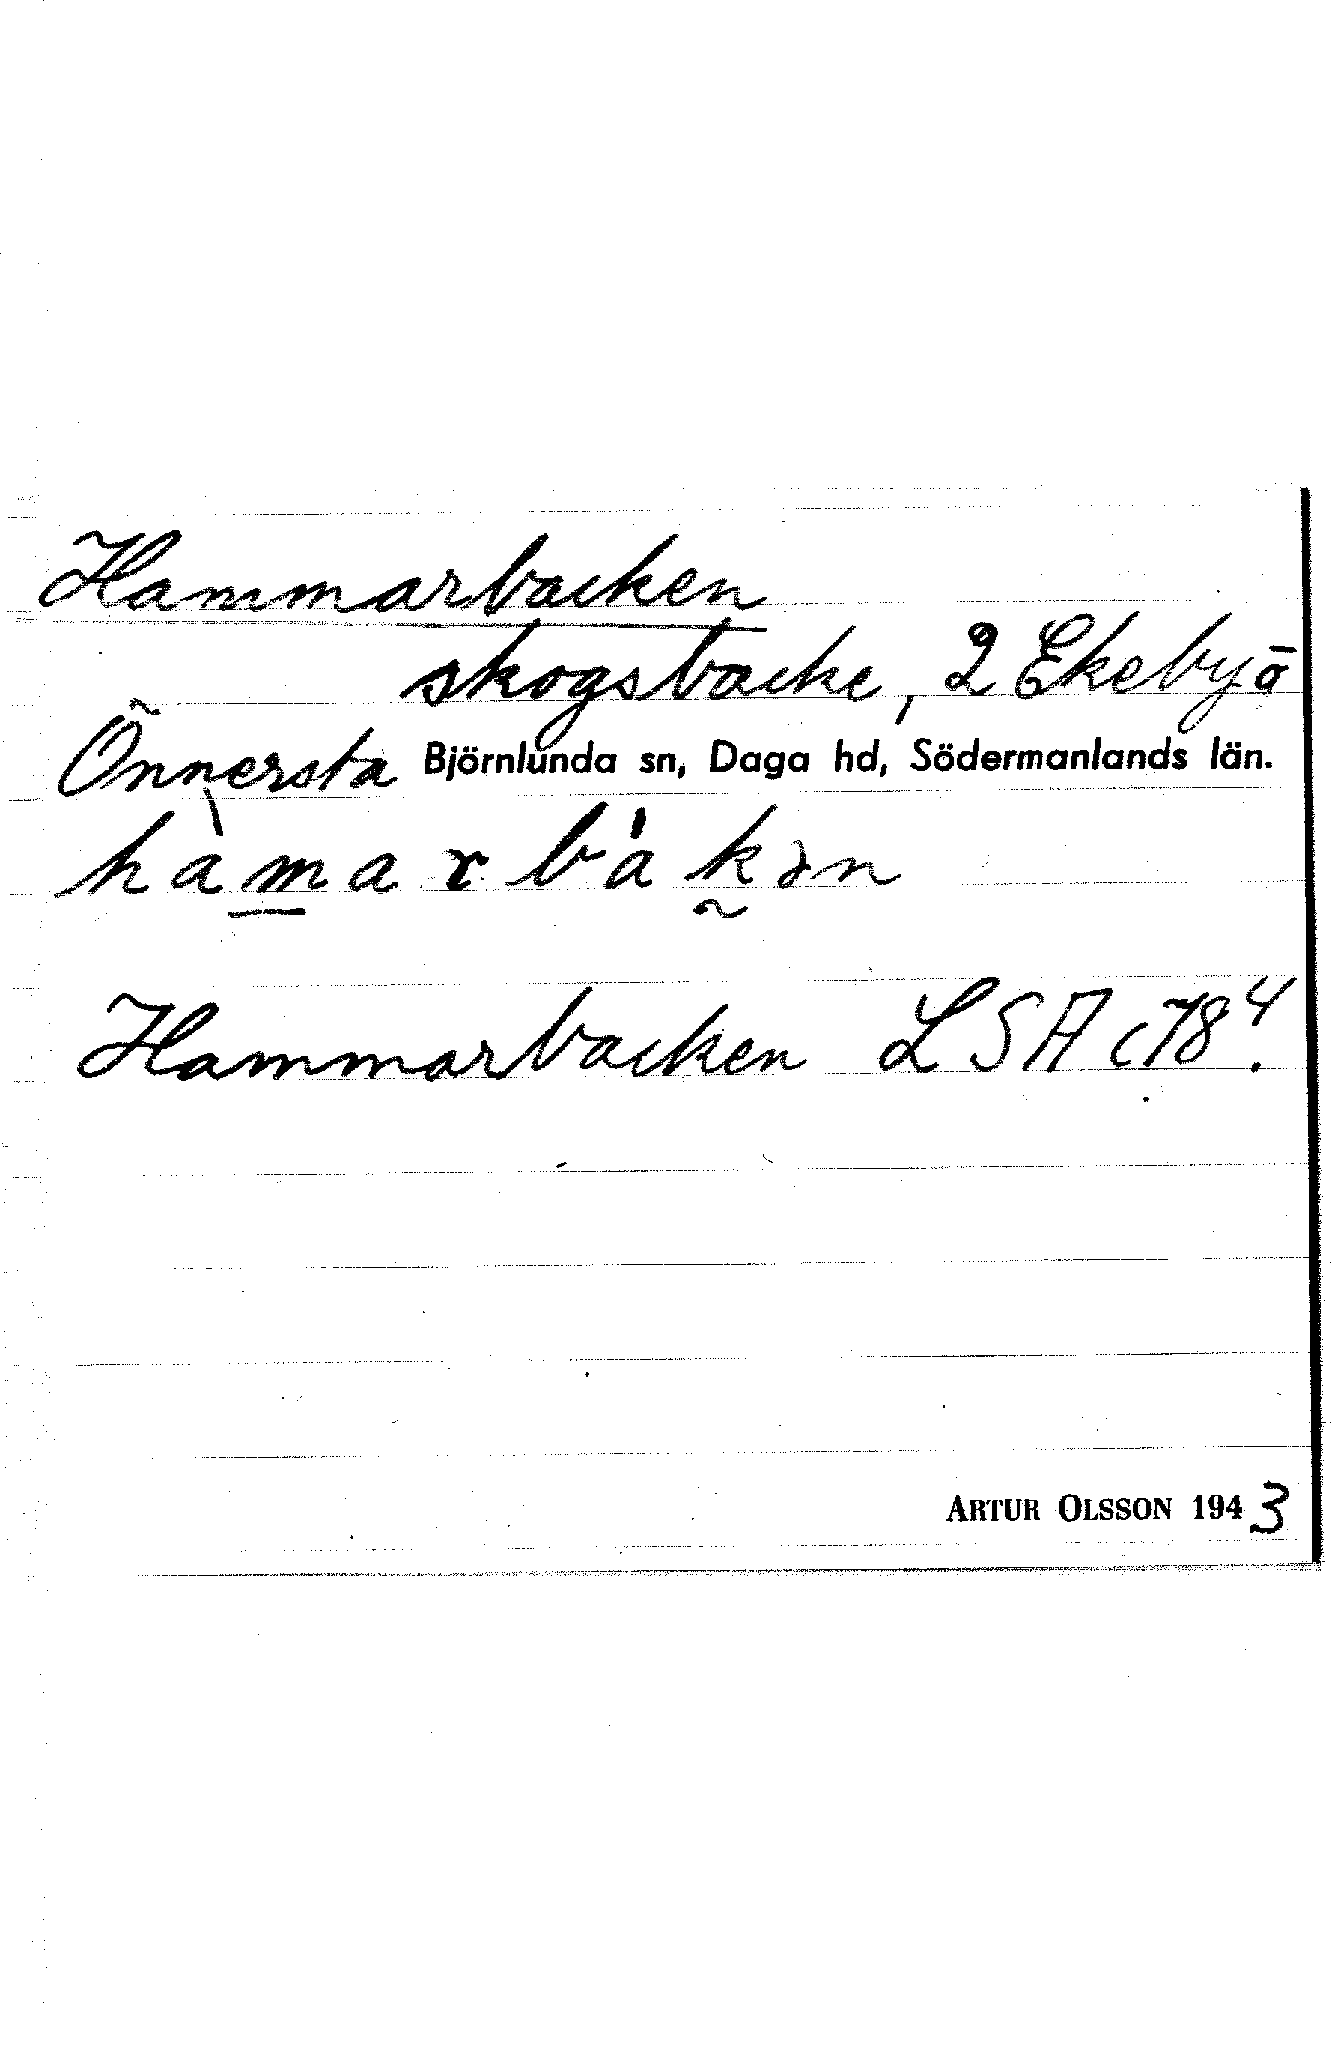 Hammarbacken
skogsbacke, 2 Ekeby ö
Önnersta Björnlunda sn, Daga hd, Södermanlands län.
hàmarbákən
Hammarbacken LSA c 78⁴.
ARTUR OLSSON 1943